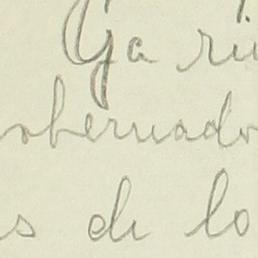 Ga ri
obernado
s de lo